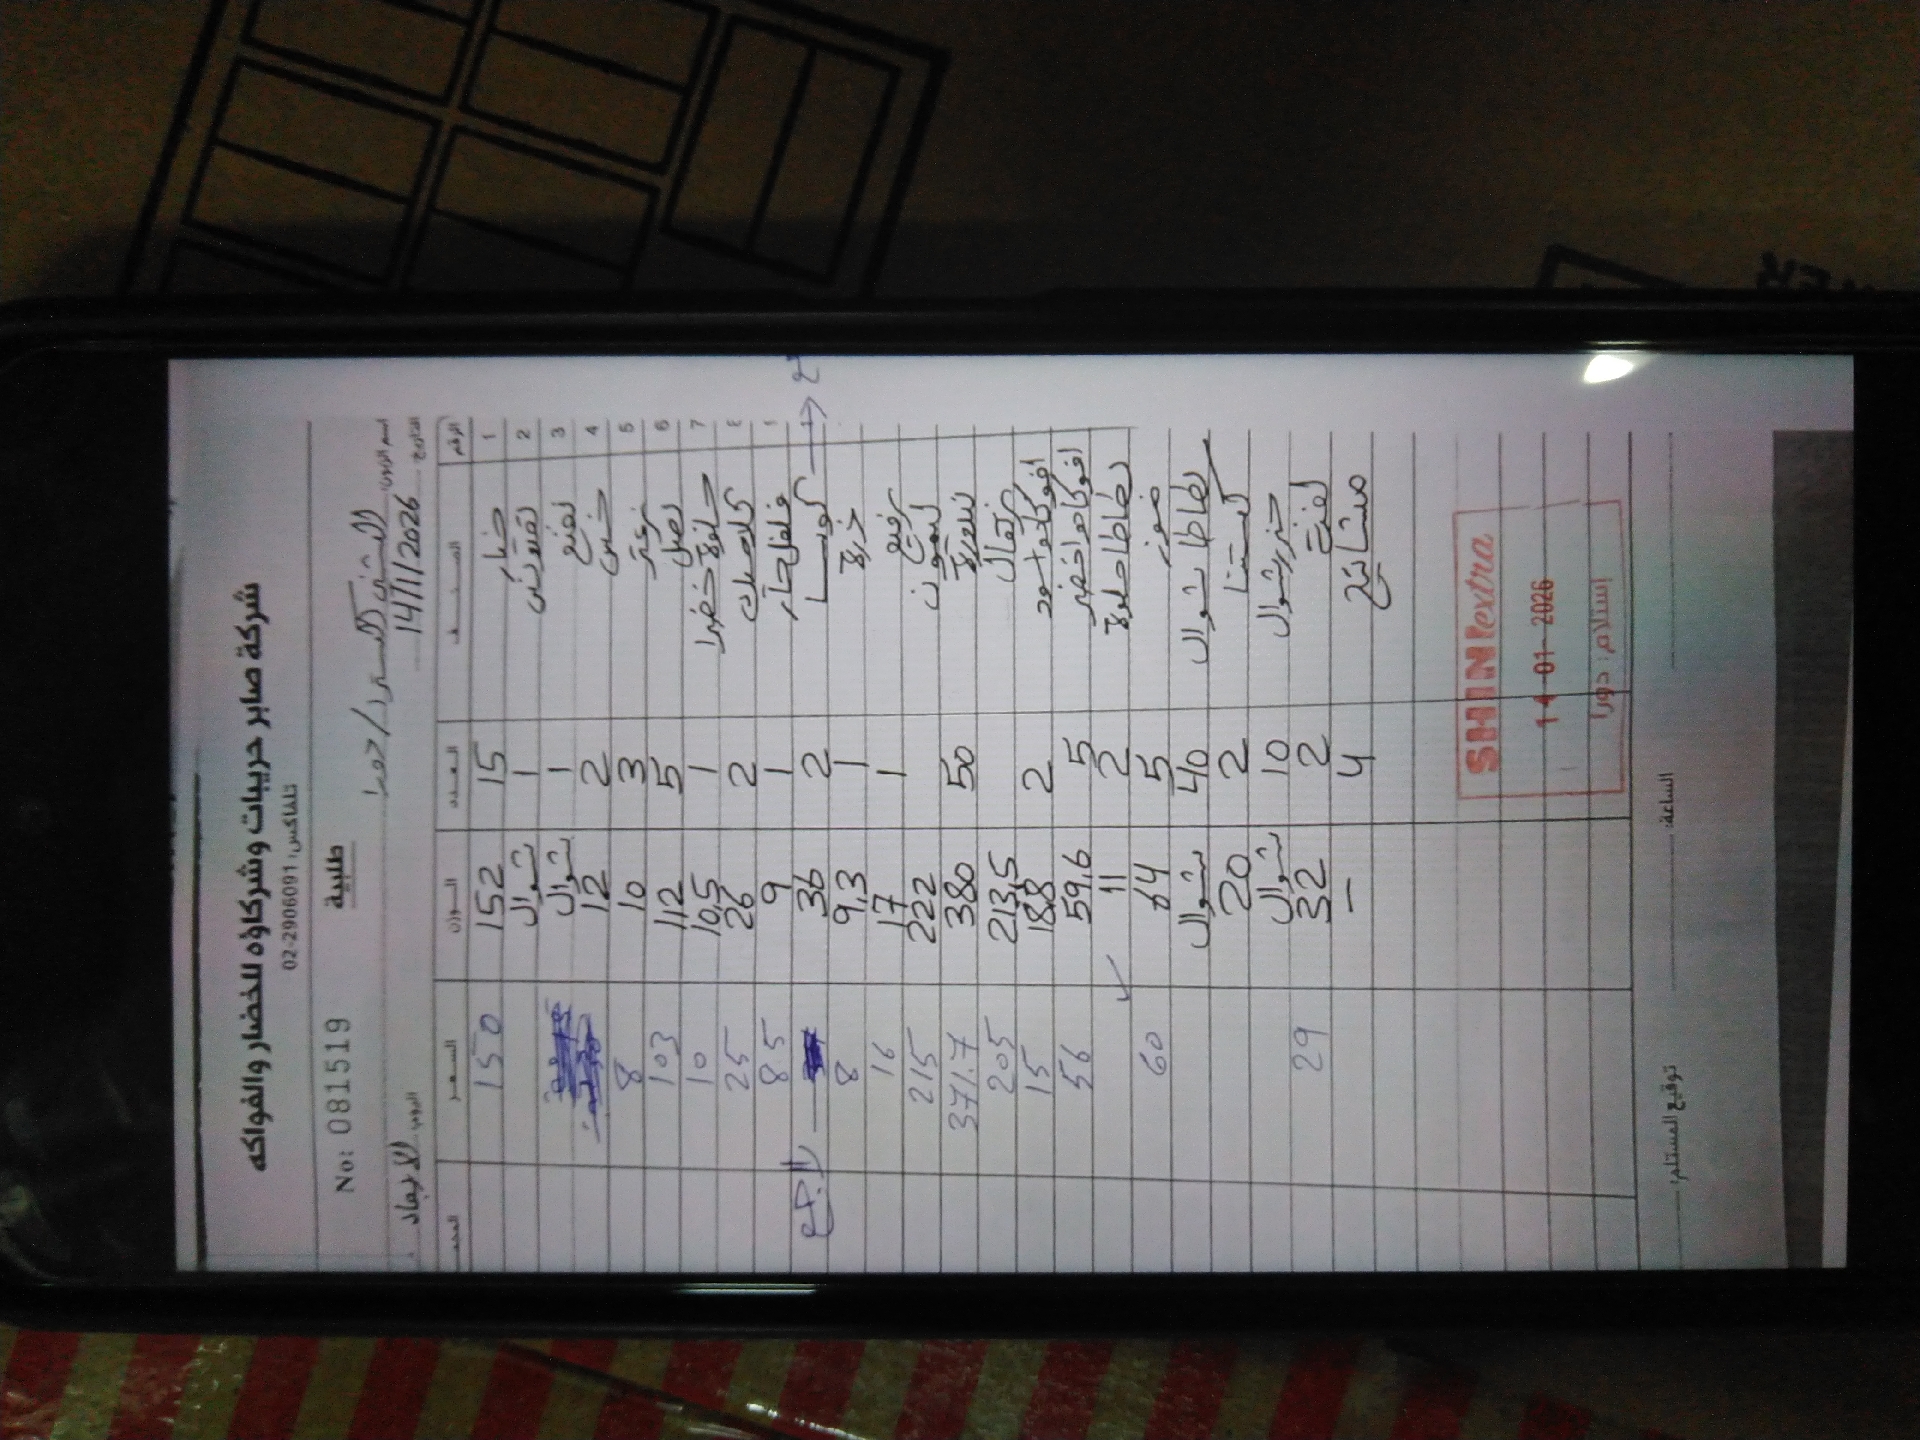 شركة صابر حريبات وشركاؤه للخضار والفواكه
تلفاكس: 02-2906091
No: 0815519 طلبية
اليوم: الاربعاء التاريخ 14/1/2026
الرقم الصنف العدد الوزن السعر
1 خيار 15 152 150
2 1 شوال
3 1 شوال
4 خس 2 12
5 زعتر 3 10 8
6 بصل 5 112 103
7 خضرا 1 10,5 10
2 26 25
فلفل حار 1 9 8.5
كوسا 2 36
ذرة 1 9,3 8
1 17 16
ليمون 222 215
بندورة 50 380 371.7
برتقال 213,5 205
افوكادو اسود 2 18,8 15
افوكادو اخضر 5 59,6 56
بطاطا حلوة 2 11
موز 5 64 60
بطاطا شوال 40 شوال
كستنا 2 20
جزر شوال 10 شوال
2 32 29
4 —
SHINI extra
14-01-2026
استلام: دورا
توقيع المستلم: الساعة: